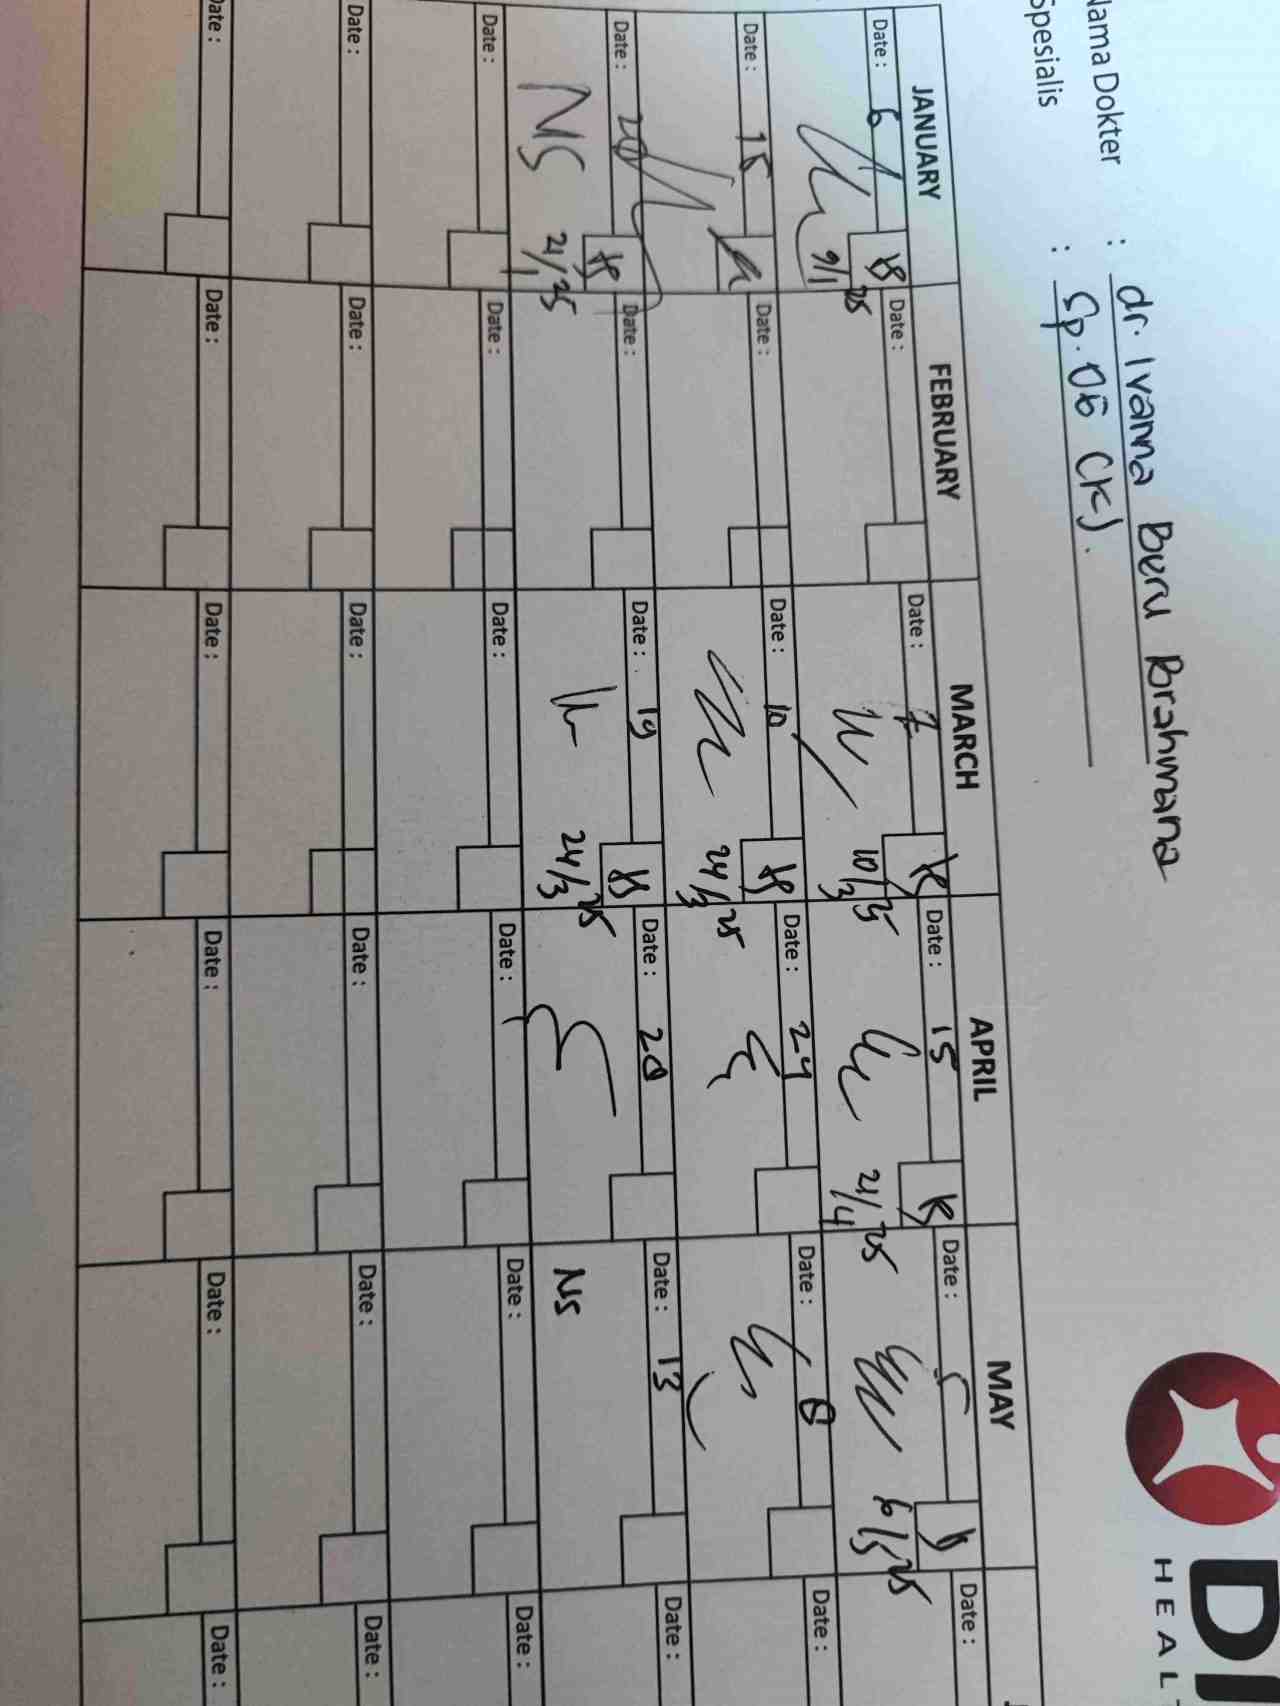 Nama Dokter : dr. Ivanna Beru Brahmana
Spesialis : Sp. OG (K).
D
HEAL
JANUARY FEBRUARY MARCH APRIL MAY
Date : 6 Date : Date : 7 Date : 15 Date : 5 Date :
9/1 25 10/3 25 21/4 25 6/5 25
Date : 15 Date : Date : 10 Date : 24 Date : 8 Date :
24/3 25
Date : 20 Date : Date : 19 Date : 28 Date : 13 Date :
NS 21/1 25 24/3 25 NS
Date : Date : Date : Date : Date : Date :
Date : Date : Date : Date : Date : Date :
Date : Date : Date : Date : Date : Date :